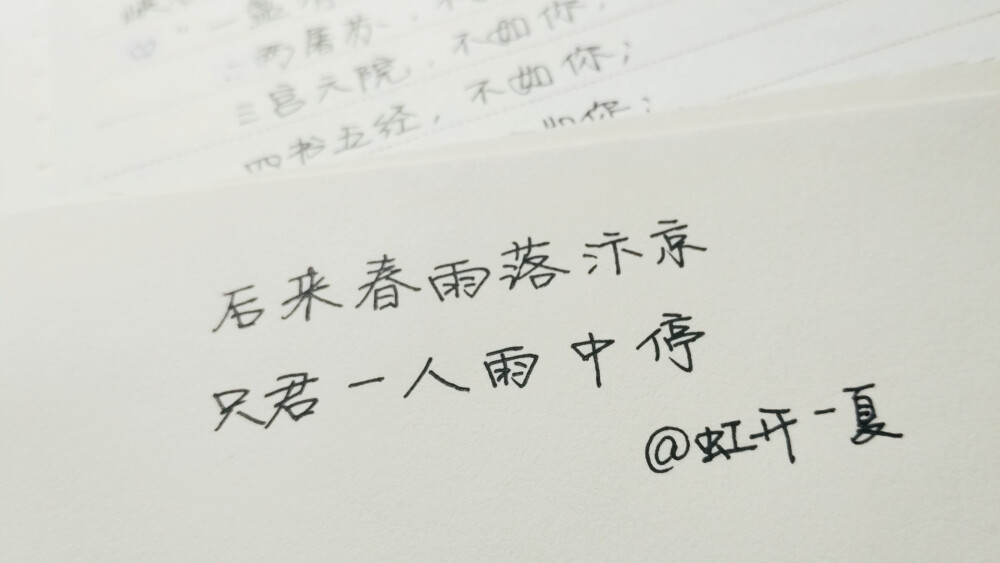 两屠苏，不
三宫六院，不如你；
四书五经，不如你；
如你；
后来春雨落汴京
只君一人雨中停
@虹开一夏